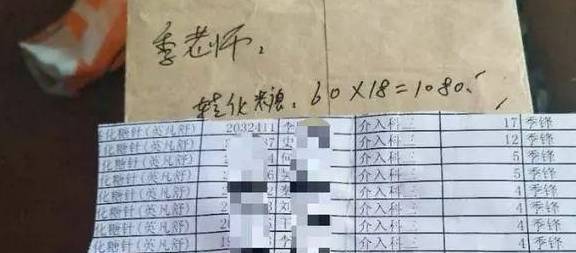 季老师,
转化糖: 60×18=1080.
化糖针(英凡舒) 2032411 李 介入科三 17 季锋
化糖针(英凡舒) 介入科三 12 季锋
化糖针(英凡舒) 介入科三 5 季锋
化糖针(英凡舒) 介入科三 5 季锋
化糖针(英凡舒) 介入科三 4 季锋
化糖针(英凡舒) 刘 介入科三 4 季锋
化糖针(英凡舒) 介入科三 4 季锋
化糖针(英凡舒) 介入科三 4 季锋